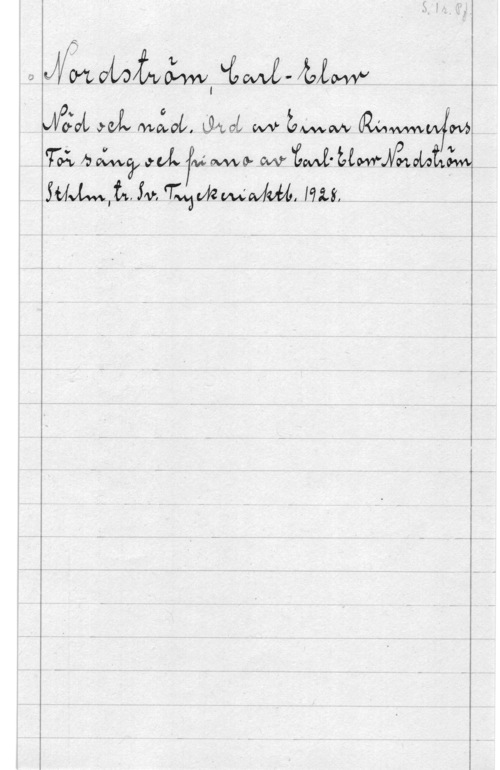 S. 1 s. Pf
Nordström, Carl-Elow
Nöd och nåd. Ord av Einar Rimmerfors
För sång och piano av Carl-Elow Nordström
Sthlm, tr. Sv. Tryckeriaktb. 1928.